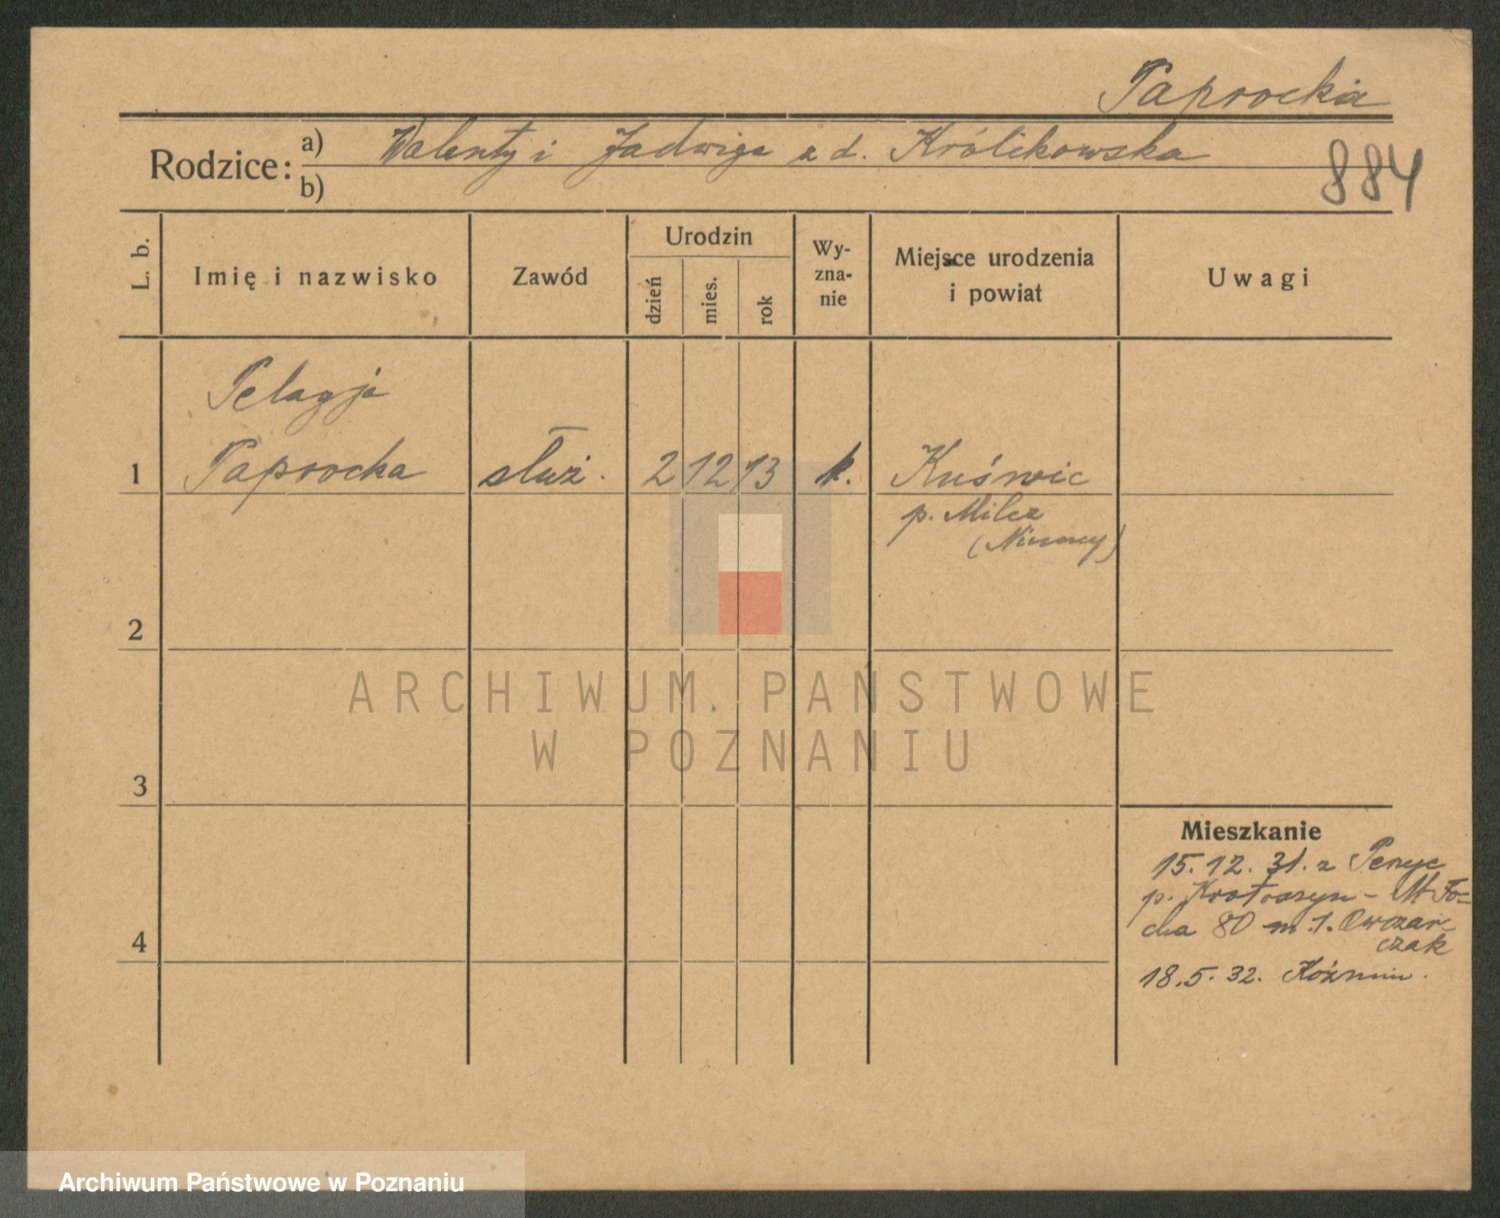 Paprocka
Rodzice: a) Walenty i Jadwiga z d. Królikowska
b)
884
L. b.
Imię i nazwisko
Zawód
Urodzin
dzień
mies.
rok
Wy-
zna-
nie
Miejsce urodzenia
i powiat
Uwagi
Pelagja
1 Paprocka służ. 2 12 13 k. Kuświc
p. Milcz
(Niemcy)
2
ARCHIWUM PAŃSTWOWE
W POZNANIU
3
Mieszkanie
15.12.31. z
p. Krotoszyn – M Fo=
cha 80 m.1. Owczar-
czak
4
18.5.32. Koźmin.
Archiwum Państwowe w Poznaniu